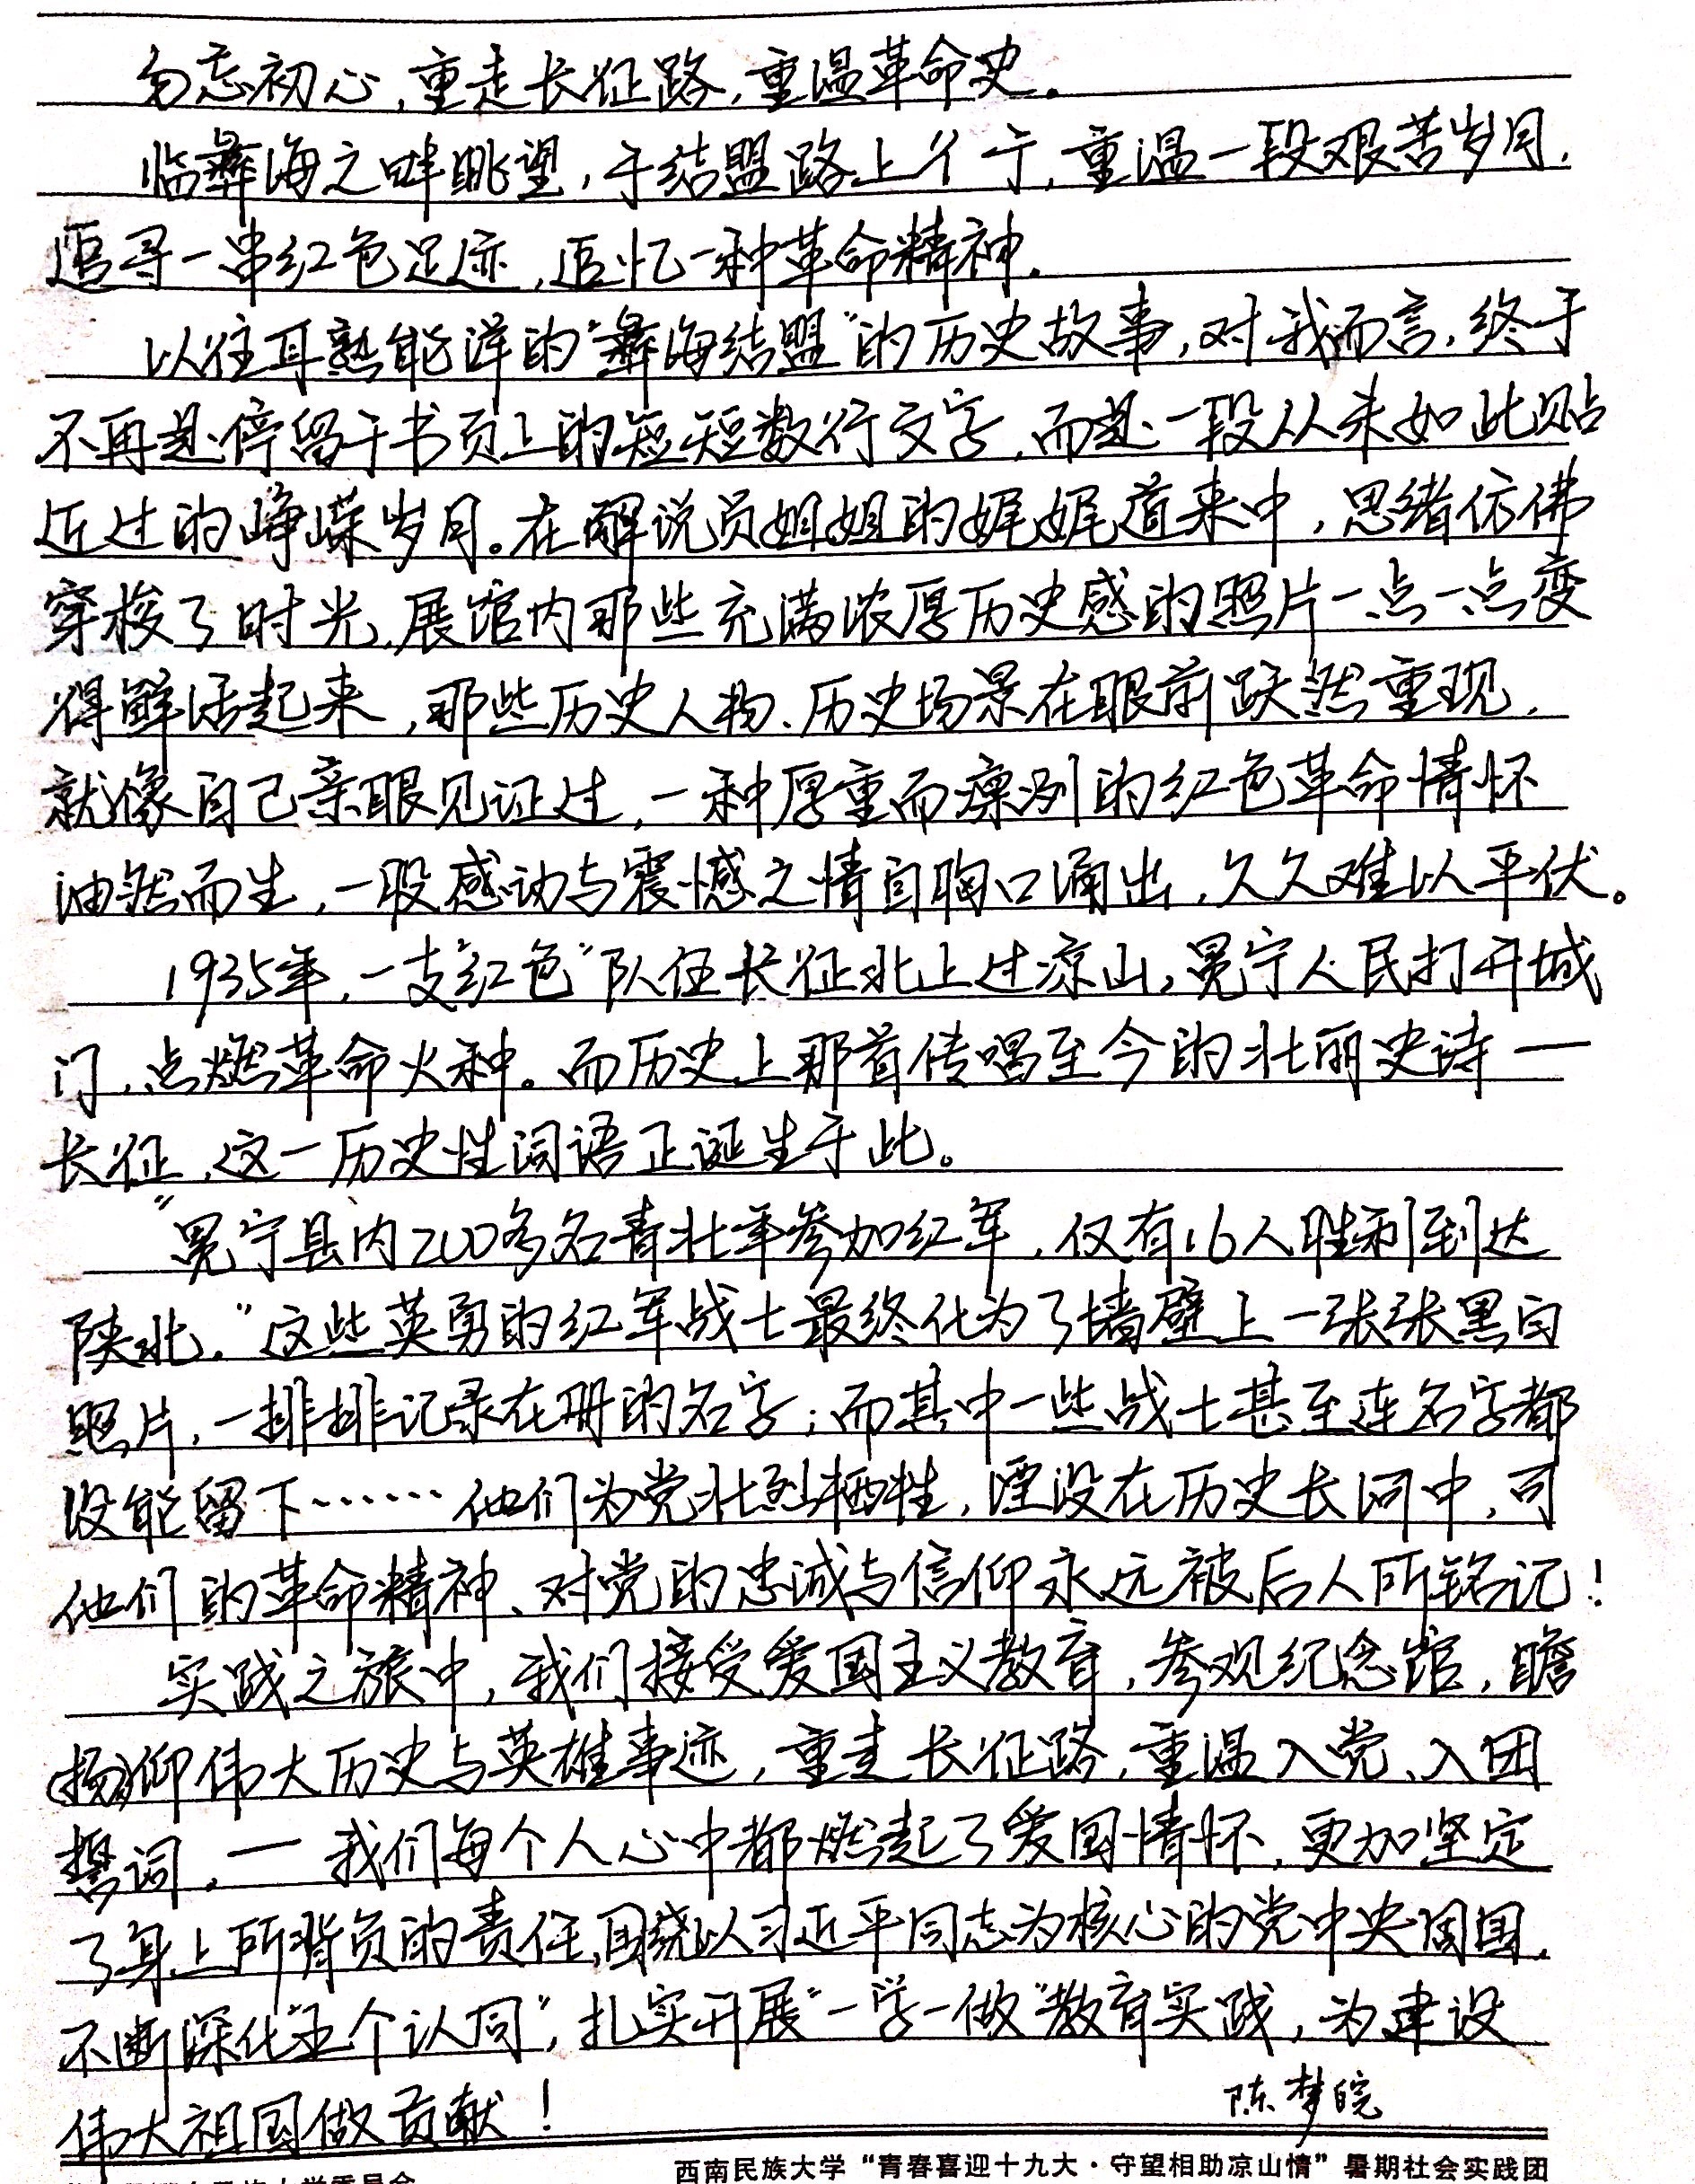 勿忘初心，重走长征路，重温革命史。
临彝海之畔眺望，于结盟路上彳亍，重温一段艰苦岁月，
追寻一串红色足迹，追忆一种革命精神。
以往耳熟能详的“彝海结盟”的历史故事，对我而言，终于
不再是停留于书页上的短短数行文字，而是一段从未如此贴
近过的峥嵘岁月。在解说员姐姐的娓娓道来中，思绪仿佛
穿梭了时光，展馆内那些充满浓厚历史感的照片一点一点变
得鲜活起来，那些历史人物、历史场景在眼前跃然重现，
就像自己亲眼见证过，一种厚重而凛冽的红色革命情怀
油然而生，一股感动与震憾之情自胸口涌出，久久难以平伏。
1935年，一支“红色”队伍长征北上过凉山，冕宁人民打开城
门，点燃革命火种。而历史上那首传唱至今的壮丽史诗—
长征，这一历史性词语正诞生于此。
“冕宁县内200多名青壮年参加红军，仅有16人胜利到达
陕北。”这些英勇的红军战士最终化为了墙壁上一张张黑白
照片，一排排记录在册的名字；而其中一些战士甚至连名字都
没能留下……他们为党壮烈牺牲，湮没在历史长河中，可
他们的革命精神、对党的忠诚与信仰永远被后人所铭记！
实践之旅中，我们接受爱国主义教育，参观纪念馆，瞻
(扬)仰伟大历史与英雄事迹，重走长征路，重温入党、入团
誓词，—我们每个人心中都燃起了爱国情怀，更加坚定
了身上所背负的责任，围绕以习近平同志为核心的党中央周围，
不断深化“五个认同”，扎实开展“一学一做”教育实践，为建设
伟大祖国做贡献！
陈梦皖
西南民族大学“青春喜迎十九大·守望相助凉山情”暑期社会实践团